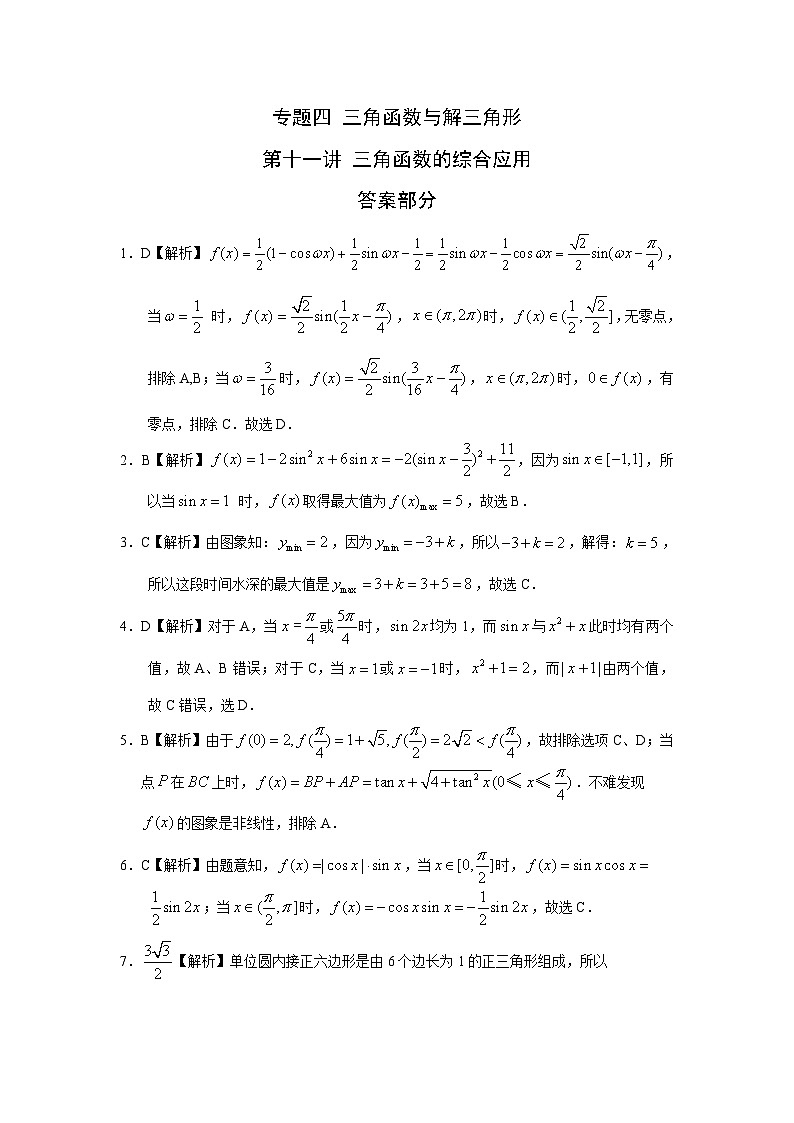 专题四 三角函数与解三角形
第十一讲 三角函数的综合应用
答案部分
1．D【解析】f(x) = 1/2(1−cos ωx) + 1/2 sin ωx − 1/2 = 1/2 sin ωx − 1/2 cos ωx = √2/2 sin(ωx − π/4)，
当ω = 1/2 时，f(x) = √2/2 sin(1/2 x − π/4)，x∈(π, 2π)时，f(x)∈(1/2, √2/2]，无零点，
排除A,B；当ω = 3/16时，f(x) = √2/2 sin(3/16 x − π/4)，x∈(π, 2π)时，0∈f(x)，有
零点，排除C．故选D．
2．B【解析】f(x) = 1−2sin² x + 6sin x = −2(sin x − 3/2)² + 11/2，因为sin x∈[−1,1]，所
以当sin x = 1 时，f(x)取得最大值为f(x)max = 5，故选B．
3．C【解析】由图象知：ymin = 2，因为ymin = −3 + k，所以−3 + k = 2，解得：k = 5，
所以这段时间水深的最大值是ymax = 3 + k = 3 + 5 = 8，故选C．
4．D【解析】对于A，当x = π/4或5π/4时，sin 2x均为1，而sin x与x² + x此时均有两个
值，故A、B错误；对于C，当x = 1或x = −1时，x² + 1 = 2，而| x + 1|由两个值，
故C错误，选D．
5．B【解析】由于f(0) = 2, f(π/4) = 1 + √5, f(π/2) = 2√2 < f(π/4)，故排除选项C、D；当
点P在BC上时，f(x) = BP + AP = tan x + √(4 + tan² x)(0≤ x≤ π/4)．不难发现
f(x)的图象是非线性，排除A．
6．C【解析】由题意知，f(x) =| cos x | ·sin x，当x∈[0, π/2]时，f(x) = sin x cos x =
1/2 sin 2x；当x∈(π/2, π]时，f(x) = −cos x sin x = −1/2 sin 2x，故选C．
7．3√3/2【解析】单位圆内接正六边形是由6个边长为1的正三角形组成，所以